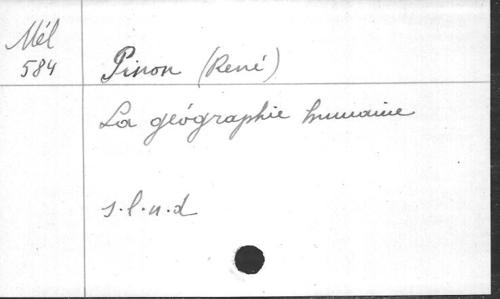 Mél
584
Pinon (René)
La géographie humaine
s.l.n.d